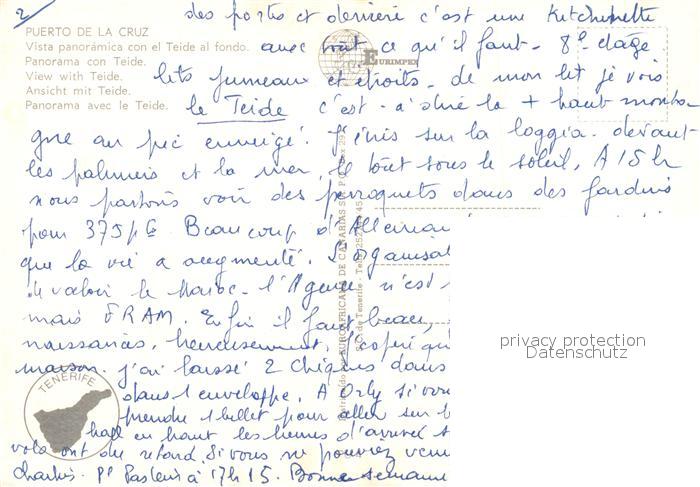 2
des portes et derrière c'est une Kitchenette
PUERTO DE LA CRUZ
Vista panorámica con el Teide al fondo.
Panorama con Teide.
View with Teide.
Ansicht mit Teide.
Panorama avec le Teide.
EURIMPEX
avec tout ce qu'il faut - 8e étage
lits jumeaux et étroits - de mon lit je vois
le Teide c'est-à-dire la + haut monta-
gne au pic enneigé. J'écris sur la loggia - devant
les palmiers et la mer, le tout sous le soleil. A 15 h
nous partons voir des perroquets dans des jardins
pour 375 pts Beaucoup d'
que la vie a augmenté. L'organisat
valoir le Maroc - l'Agence n'est
mais FRAM. Enfin il faut beau,
naissances, heureusement. J'espère qu'
maison. j'ai laissé 2 chèques dans
dans 1 enveloppe. A Orly si vou
prendre 1 billet pour aller sur
hall en haut les heures d'arrivée s
vols ont du retard. Si vous ne pouvez veni
Charles - Pl Pasteur à 17h15. Bonne semaine
TENERIFE
privacy protection
Datenschutz